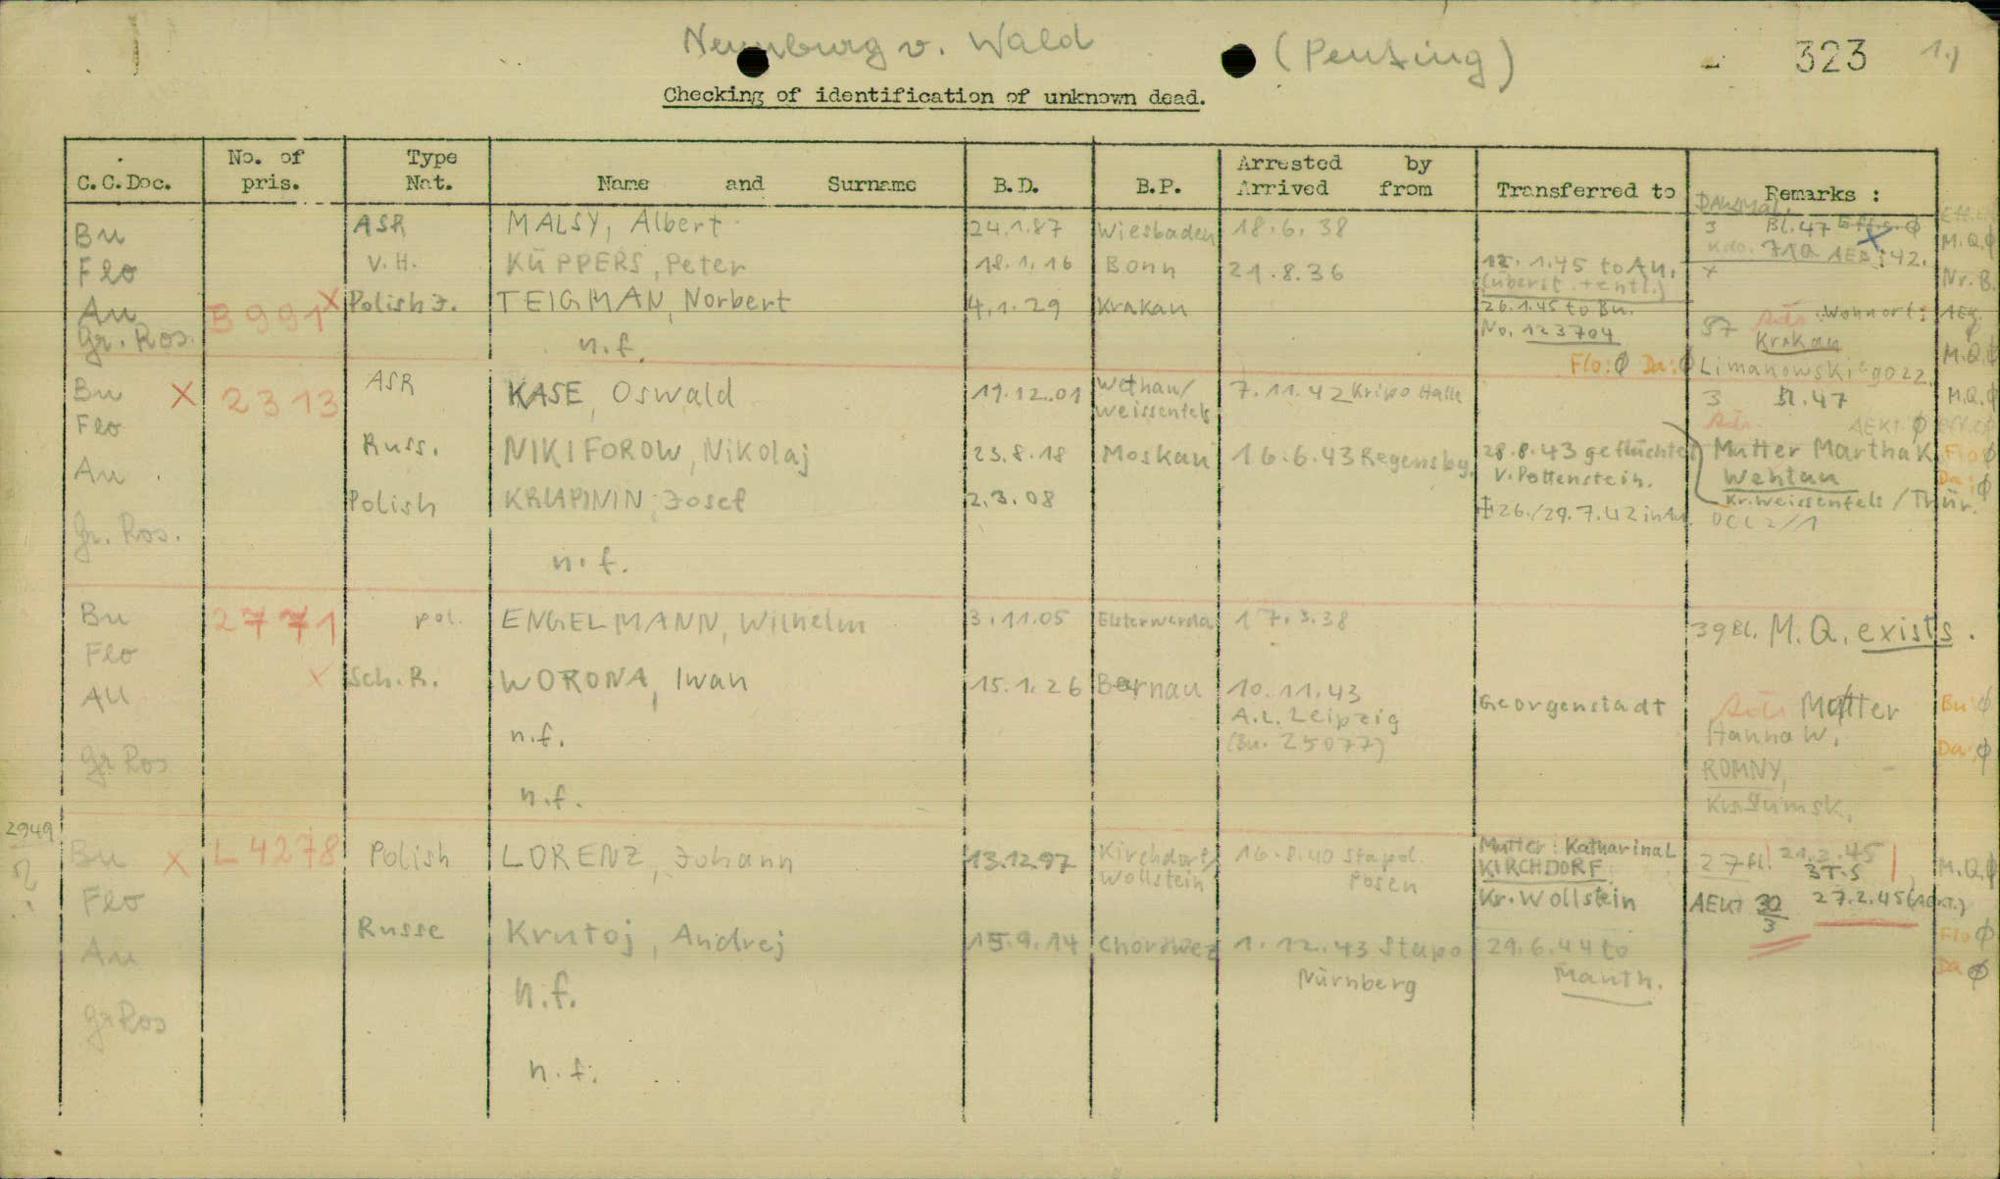 Neunburg v. Wald (Penting) 323 1.)
Checking of identification of unknown dead.
C.C.Doc. No. of pris. Type Nat. Name and Surname B.D. B.P. Arrested by Arrived from Transferred to Remarks :
Bu ASR MALSY, Albert 24.1.87 Wiesbaden 18.6.38 3 Bl.47
Flo V.H. KÜPPERS, Peter 18.1.16 Bonn 21.8.36 12.1.45 to Au.
Au B 9991 X Polish J. TEIGMAN, Norbert 4.1.29 Krakau 26.1.45 to Bu. Wohnort:
No. 123704 57 Krakau
Gr. Ros. n.f.
Flo: Ø Da: Ø Limanowskiego 22. M.Q.Ø
Bu X 2313 ASR KASE, Oswald 19.12.01 Wethau/ Weissenfels 7.11.42 Kripo Halle 3 Bl.47 M.Q.Ø
Flo AEKt Ø
Russ. NIKIFOROW, Nikolaj 23.8.18 Moskau 16.6.43 Regensbg. 28.8.43 geflüchtet Mutter Martha K. Flo Ø
Au v. Pottenstein. Wehlau Da: Ø
Polish KRUPININ, Josef 2.3.08 26./29.7.42 in Au. Kr. Weissenfels / Thür.
Gr. Ros. n.f.
Bu 2771 pol. ENGELMANN, Wilhelm 3.11.05 Elsterwerda 17.3.38 39 Bl. M.Q. exists.
Flo
X Sch.R. WORONA, Iwan 15.1.26 Bernau 10.11.43 Georgenstadt Mutter Bu Ø
Au A.L. Leipzig Hanna W.
n.f. (Bu. 25077) Da Ø
Gr Ros ROMNY,
n.f.
2949
Bu X L 4278 Polish LORENZ, Johann 13.12.97 Kirchdorf/ Wollstein 16.8.40 Stapol. Posen Mutter: Katharina L 27 Bl. 21.2.45 M.Q.Ø
KIRCHDORF 3T.5
Flo Kr. Wollstein AEKt 30/3 27.2.45
Russe Krutoj, Andrej 15.9.14 1.12.43 Stapo 29.6.44 to Flo Ø
Au Nürnberg Mauth. Da Ø
n.f.
Gr Ros
n.f.